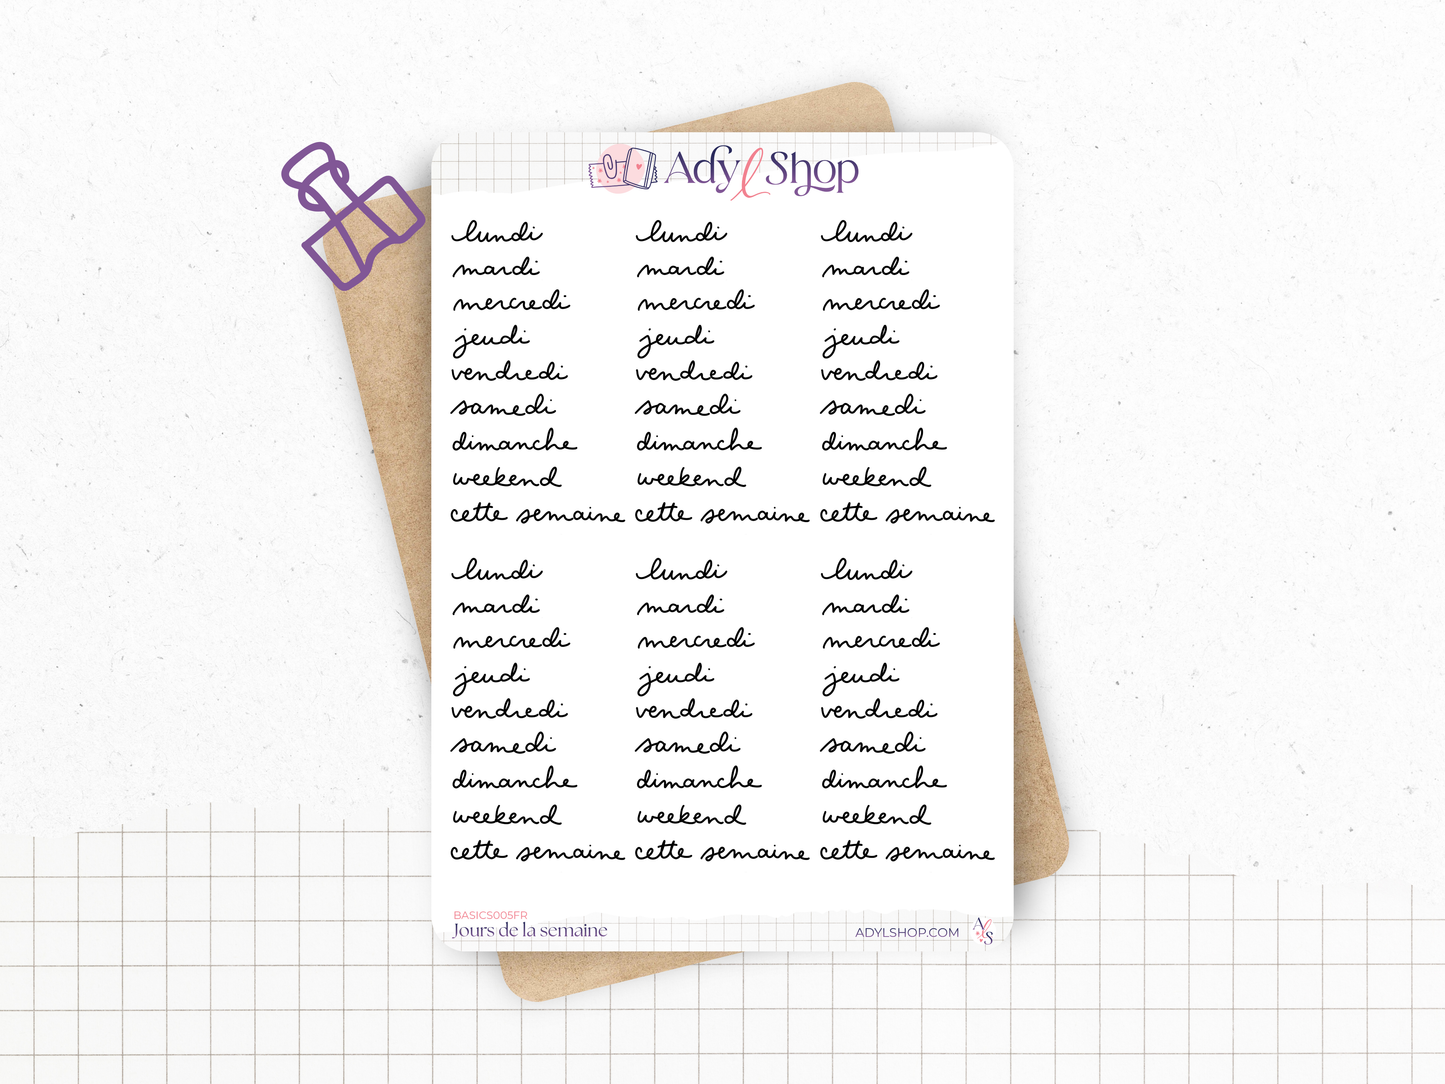 Ady l Shop
lundi lundi lundi
mardi mardi mardi
mercredi mercredi mercredi
jeudi jeudi jeudi
vendredi vendredi vendredi
samedi samedi samedi
dimanche dimanche dimanche
weekend weekend weekend
cette semaine cette semaine cette semaine
lundi lundi lundi
mardi mardi mardi
mercredi mercredi mercredi
jeudi jeudi jeudi
vendredi vendredi vendredi
samedi samedi samedi
dimanche dimanche dimanche
weekend weekend weekend
cette semaine cette semaine cette semaine
BASICS005FR
Jours de la semaine
ADYLSHOP.COM
AlS